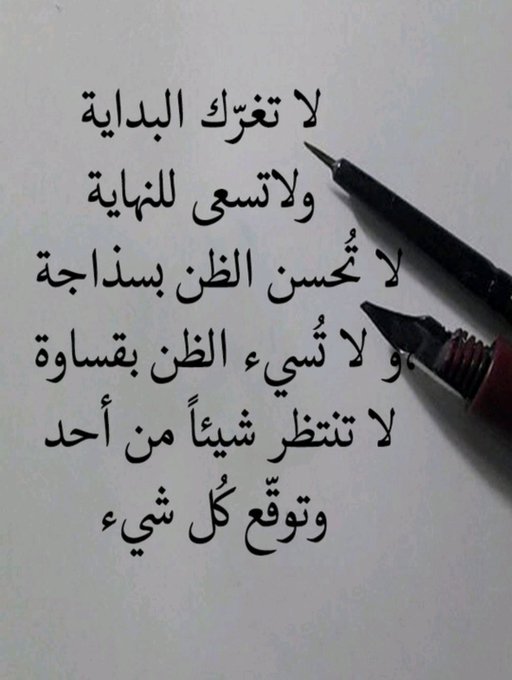 لا تغرّك البداية
ولاتسعى للنهاية
لا تُحسن الظن بسذاجة
و لا تُسيء الظن بقساوة،
لا تنتظر شيئاً من أحد
وتوقّع كُل شيء